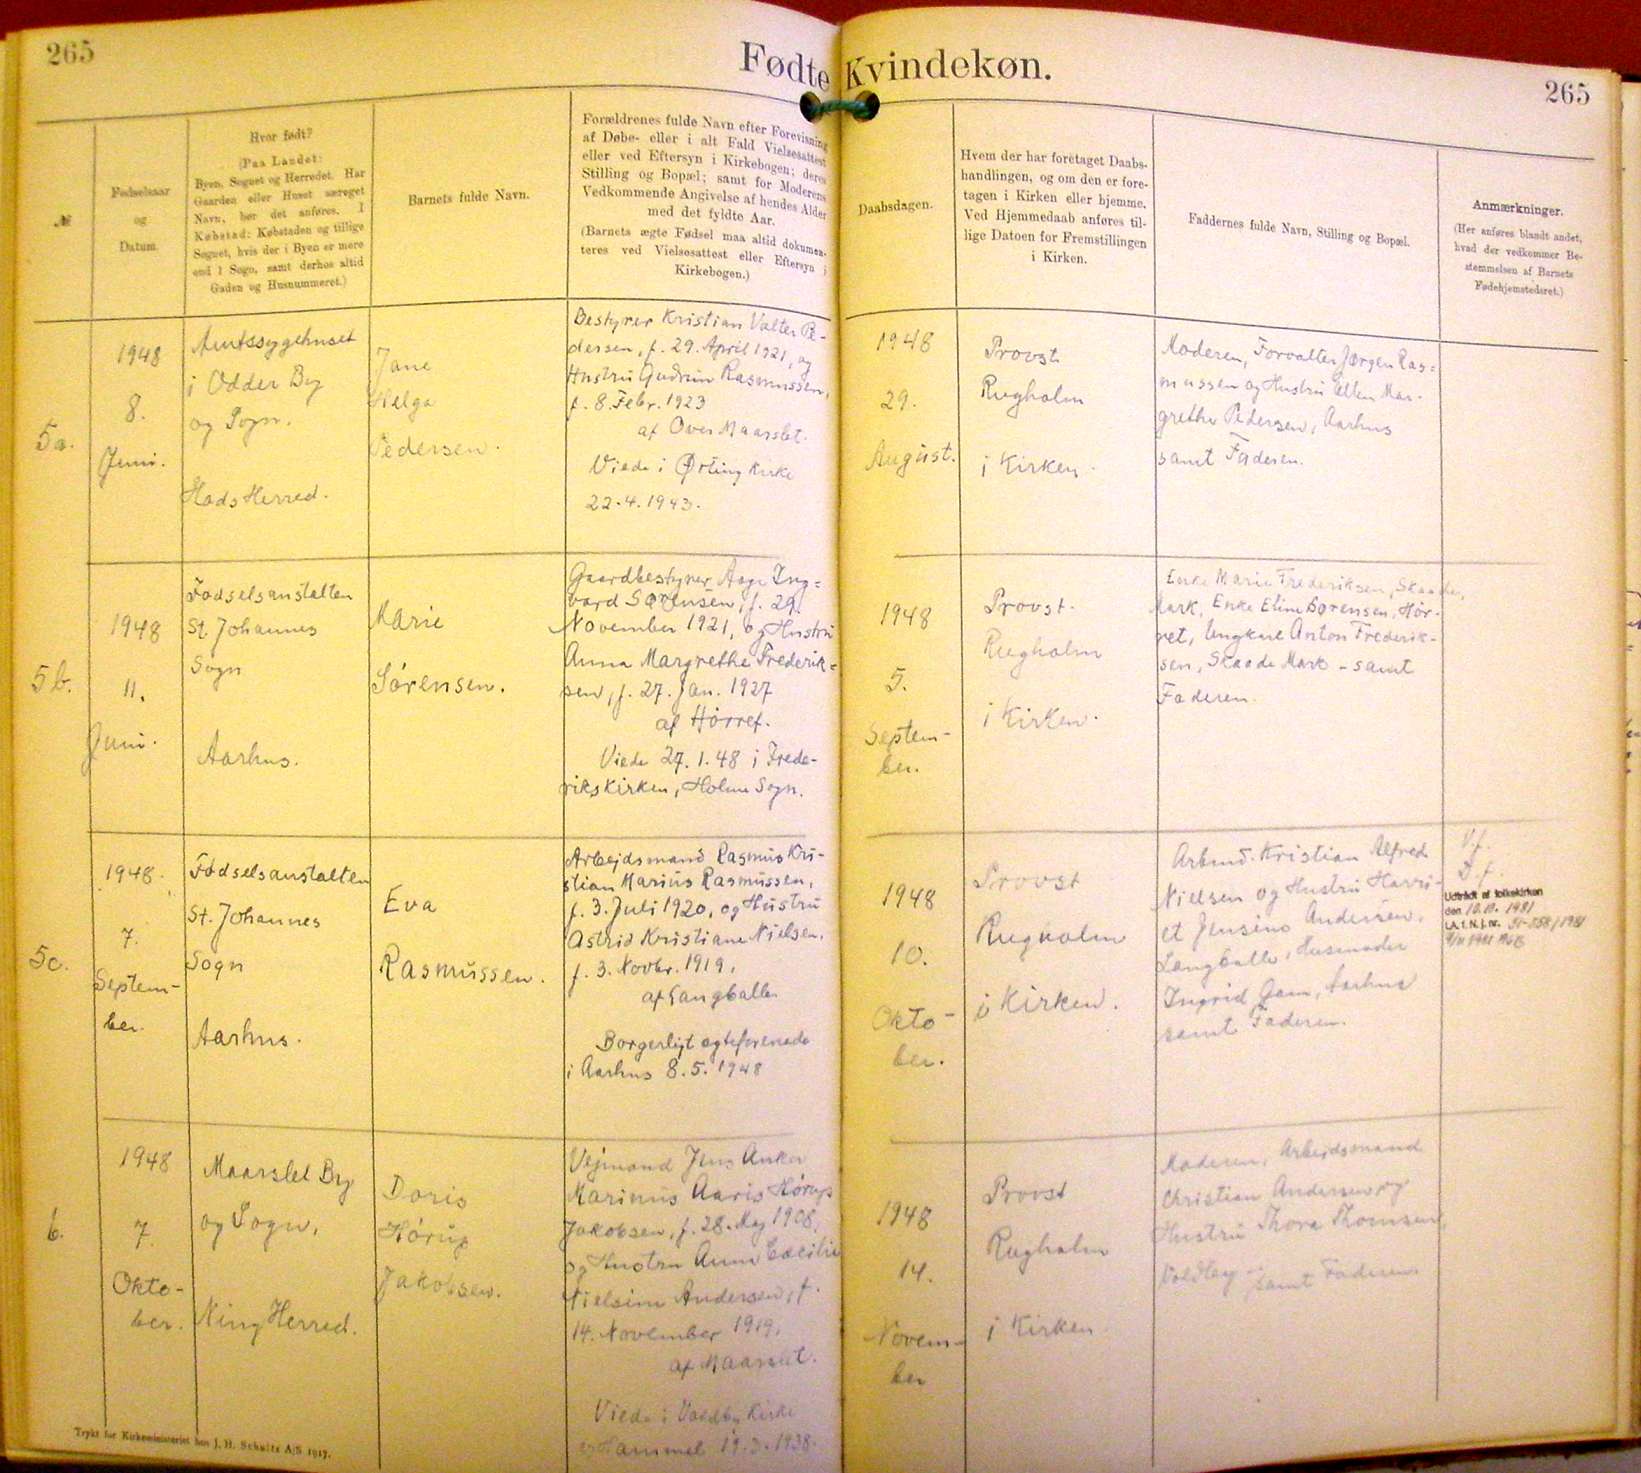 265
Fødte Kvindekøn.
265
№
Fødselsaar
og
Datum.
Hvor født?
(Paa Landet:
Byen, Sognet og Herredet. Har
Gaarden eller Huset særeget
Navn, bør det anføres. I
Købstad: Købstaden og tillige
Sognet, hvis der i Byen er mere
end 1 Sogn, samt derhos altid
Gaden og Husnummeret.)
Barnets fulde Navn.
Forældrenes fulde Navn efter Forevisning
af Døbe- eller i alt Fald Vielsesattest
eller ved Eftersyn i Kirkebogen; deres
Stilling og Bopæl; samt for Moderens
Vedkommende Angivelse af hendes Alder
med det fyldte Aar.
(Barnets ægte Fødsel maa altid dokumen-
teres ved Vielsesattest eller Eftersyn i
Kirkebogen.)
Daabsdagen.
Hvem der har foretaget Daabs-
handlingen, og om den er fore-
tagen i Kirken eller hjemme.
Ved Hjemmedaab anføres til-
lige Datoen for Fremstillingen
i Kirken.
Faddernes fulde Navn, Stilling og Bopæl.
Anmærkninger.
(Her anføres blandt andet,
hvad der vedkommer Be-
stemmelsen af Barnets
Fødehjemstedsret.)
5a.
1948
8.
Juni.
Amtssygehuset
i Odder By
og Sogn.
Hads Herred.
Jane
Helga
Pedersen.
Bestyrer Kristian Valter Pe-
dersen, f. 29. April 1921, og
Hustru Gudrun Rasmussen,
f. 8. Febr. 1923
af Over Maarslet.
Viede i Ørting Kirke
22.4.1943.
1948
29.
August.
Provst
Rugholm
i Kirken.
Moderen, Forvalter Jørgen Ras=
mussen og Hustru Ellen Mar-
grethe Pedersen, Aarhus
samt Faderen.
5b.
1948
11.
Juni.
Fødselsanstalten
St. Johannes
Sogn
Aarhus.
Marie
Sørensen.
Gaardbestyrer Aage Ing=
vard Sørensen, f. 29.
November 1921, og Hustru
Anna Margrethe Frederik=
sen, f. 27. Jan. 1927
af Hørret.
Viede 27.1.48 i Frede-
rikskirken, Holme Sogn.
1948
5.
Septem-
ber.
Provst
Rugholm
i Kirken.
Enke Marie Frederiksen, Skaade,
Mark, Enke Eline Sørensen, Hør-
ret, Ungkarl Anton Frederik-
sen, Skaade Mark - samt
Faderen.
5c.
1948.
7.
Septem-
ber.
Fødselsanstalten
St. Johannes
Sogn
Aarhus.
Eva
Rasmussen.
Arbejdsmand Rasmus Kri-
stian Marius Rasmussen,
f. 3. Juli 1920, og Hustru
Astrid Kristiane Nielsen,
f. 3. Novbr. 1919,
af Langballe
Borgerligt ægteforenede
i Aarhus 8.5.1948
1948
10.
Okto-
ber.
Provst
Rugholm
i Kirken.
Arbmd. Kristian Alfred
Nielsen og Hustru Harri-
et Jensine Andersen,
Langballe, Husmoder
Ingrid Gam, Aarhus
samt Faderen.
V.f.
D.f.
Udtrådt af folkekirken
den 10.10.1981
6.
1948
7.
Okto-
ber.
Maarslet By
og Sogn,
Ning Herred.
Doris
Hørup
Jakobsen.
Vejmand Jens Anker
Marinus Aaris Hørup
Jakobsen, f. 28. Maj 1908,
og Hustru Anna Cæcilie
Nielsine Andersen, f.
14. November 1919,
af Maarslet.
Viede i Voldby Kirke
Hammel 19.3.1938.
1948
14.
Novem-
ber
Provst
Rugholm
i Kirken.
Moderen, Arbejdsmand
Christian Andersen og
Hustru Thora Thomsen,
Voldby - samt Faderen
Trykt for Kirkeministeriet hos J. H. Schultz A/S 1917.